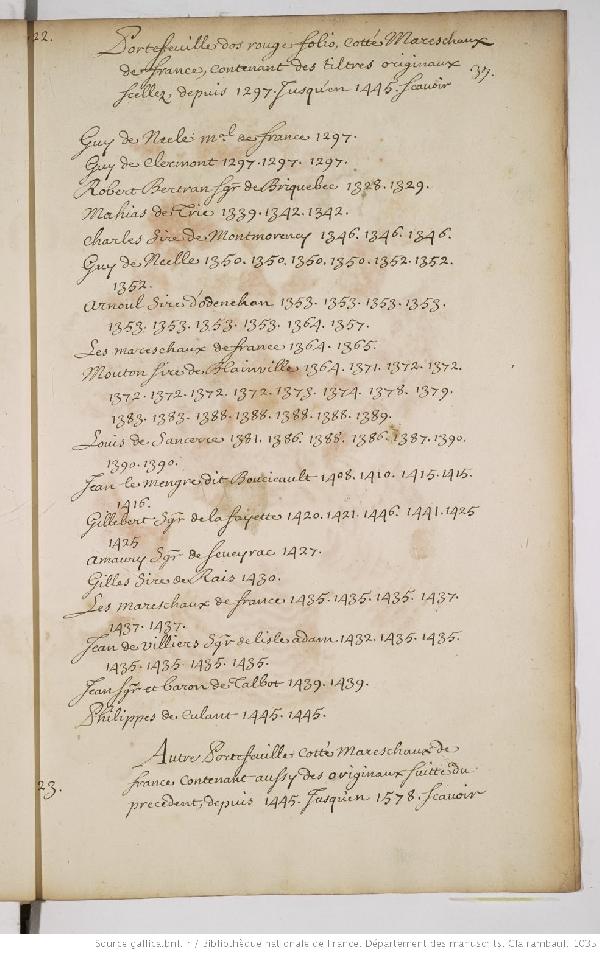 22.
Portefeuille dos rouge folio, cotté Mareschaux
de france, contenant des tiltres originaux
37.
scellez, depuis 1297. Jusqu'en 1445. Scavoir
Guy de Neele mal. de france 1297.
Guy de Clermont 1297. 1297. 1297.
Robert Bertran sgr. de Briquebec 1328. 1329.
Mahias de Trie 1339. 1342. 1342.
Charles Sire de Montmorency 1346. 1346. 1346.
Guy de Neelle 1350. 1350. 1350. 1350. 1352. 1352.
1352.
Arnoul Sire d'odenehan 1353. 1353. 1353. 1353.
1353. 1353. 1353. 1353. 1364. 1357.
Les mareschaux de france 1364. 1365.
Mouton sire de Blainville 1364. 1371. 1372. 1372.
1372. 1372. 1372. 1372. 1373. 1374. 1378. 1379.
1383. 1383. 1388. 1388. 1388. 1388. 1389.
Louis de Sancerre 1381. 1386. 1385. 1386. 1387. 1390.
1390. 1390.
Jean le mengre dit Boucicault 1408. 1410. 1415. 1415.
1416.
Gillebert sgr. de la fayette 1420. 1421. 1446. 1441. 1425
1425
Amaury sgr. de seveyrac 1427.
Gilles Sire de Rais 1430.
Les mareschaux de france 1435. 1435. 1435. 1437.
1437. 1437.
Jean de villiers sgr. de lisle adam 1432. 1435. 1435.
1435. 1435. 1435. 1435.
Jean sgr. et baron de Talbot 1439. 1439.
Philippes de Culant 1445. 1445.
Autre Portefeuille cotté Mareschaux de
23.
france contenant aussy des originaux suitte du
precedent, depuis 1445. Jusqu'en 1578. Scavoir
Source gallica.bnf.fr / Bibliothèque nationale de France. Département des manuscrits. Clairambault 1035